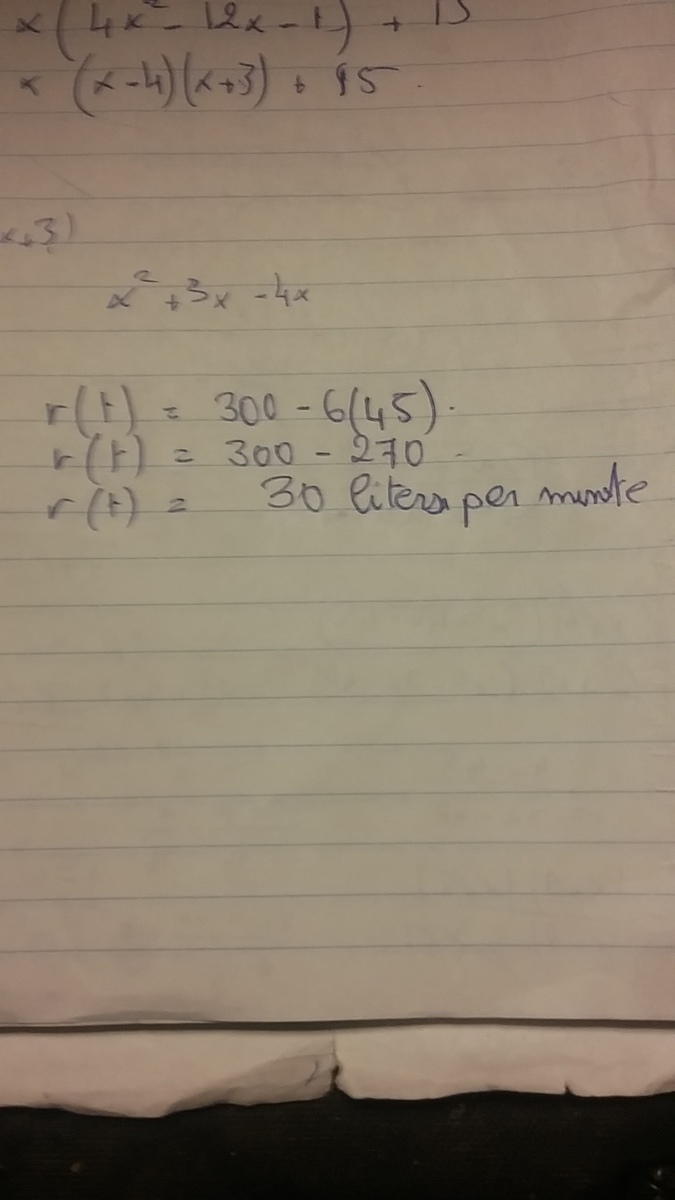 x(4x² - 12x - 1) + 15
x (x-4)(x+3) + 15.
x+3)
x² + 3x - 4x
r(t) = 300 - 6(45).
r(t) = 300 - 270
r(t) = 30 liters per minute